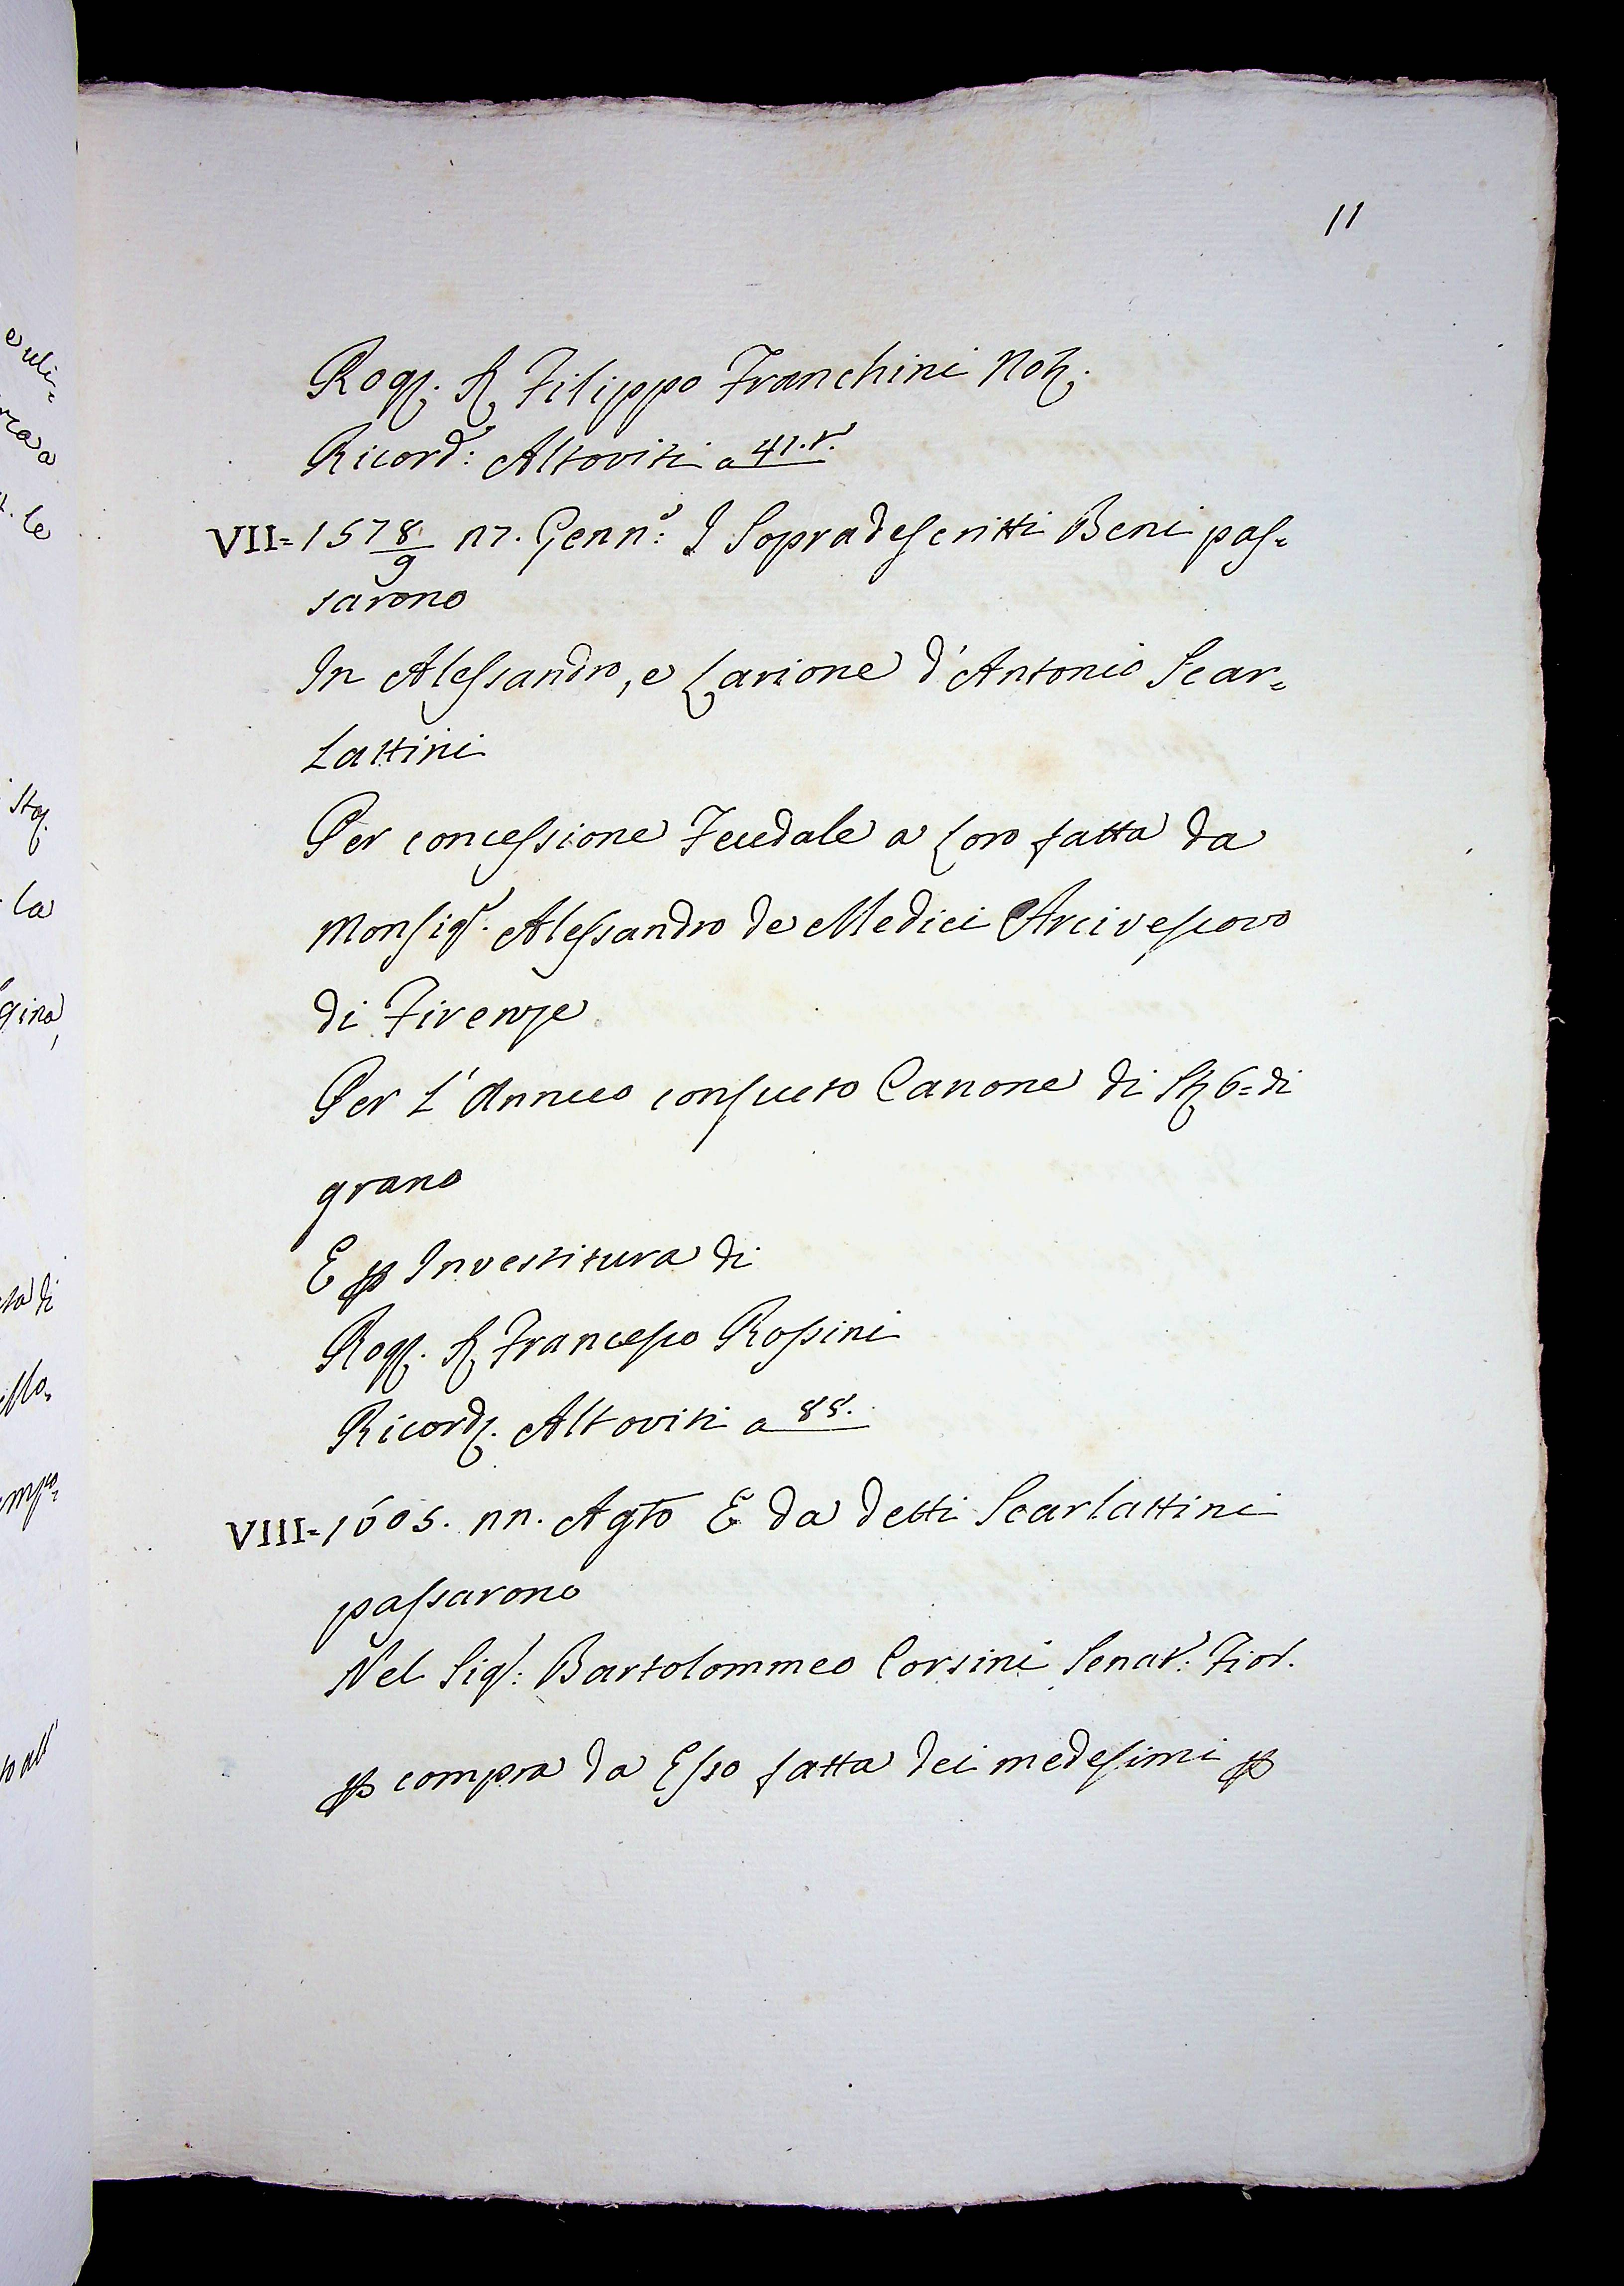 11
Rog. S. Filippo Franchini Not.
Ricord: Altoviti a 41.t.
VII= 1578/9 17. Genn: I Sopradescritti Beni pas=
sarono
In Alessandro, e Larione d'Antonio Scar=
Lattini
Per concessione Feudale a Loro fatta da
Monsig. Alessandro de Medici Arcivescovo
di Firenze
Per L'Annuo consueto Canone di St 6= di
grano
E p Investitura di
Rog. S. Francesco Rossini
Ricord. Altoviti a 88.
VIII= 1605. 11. Agto E da detti Scarlattini
passarono
Nel Sig: Bartolommeo Corsini Senat: Fior.
p compra da Esso fatta dei medesimi p